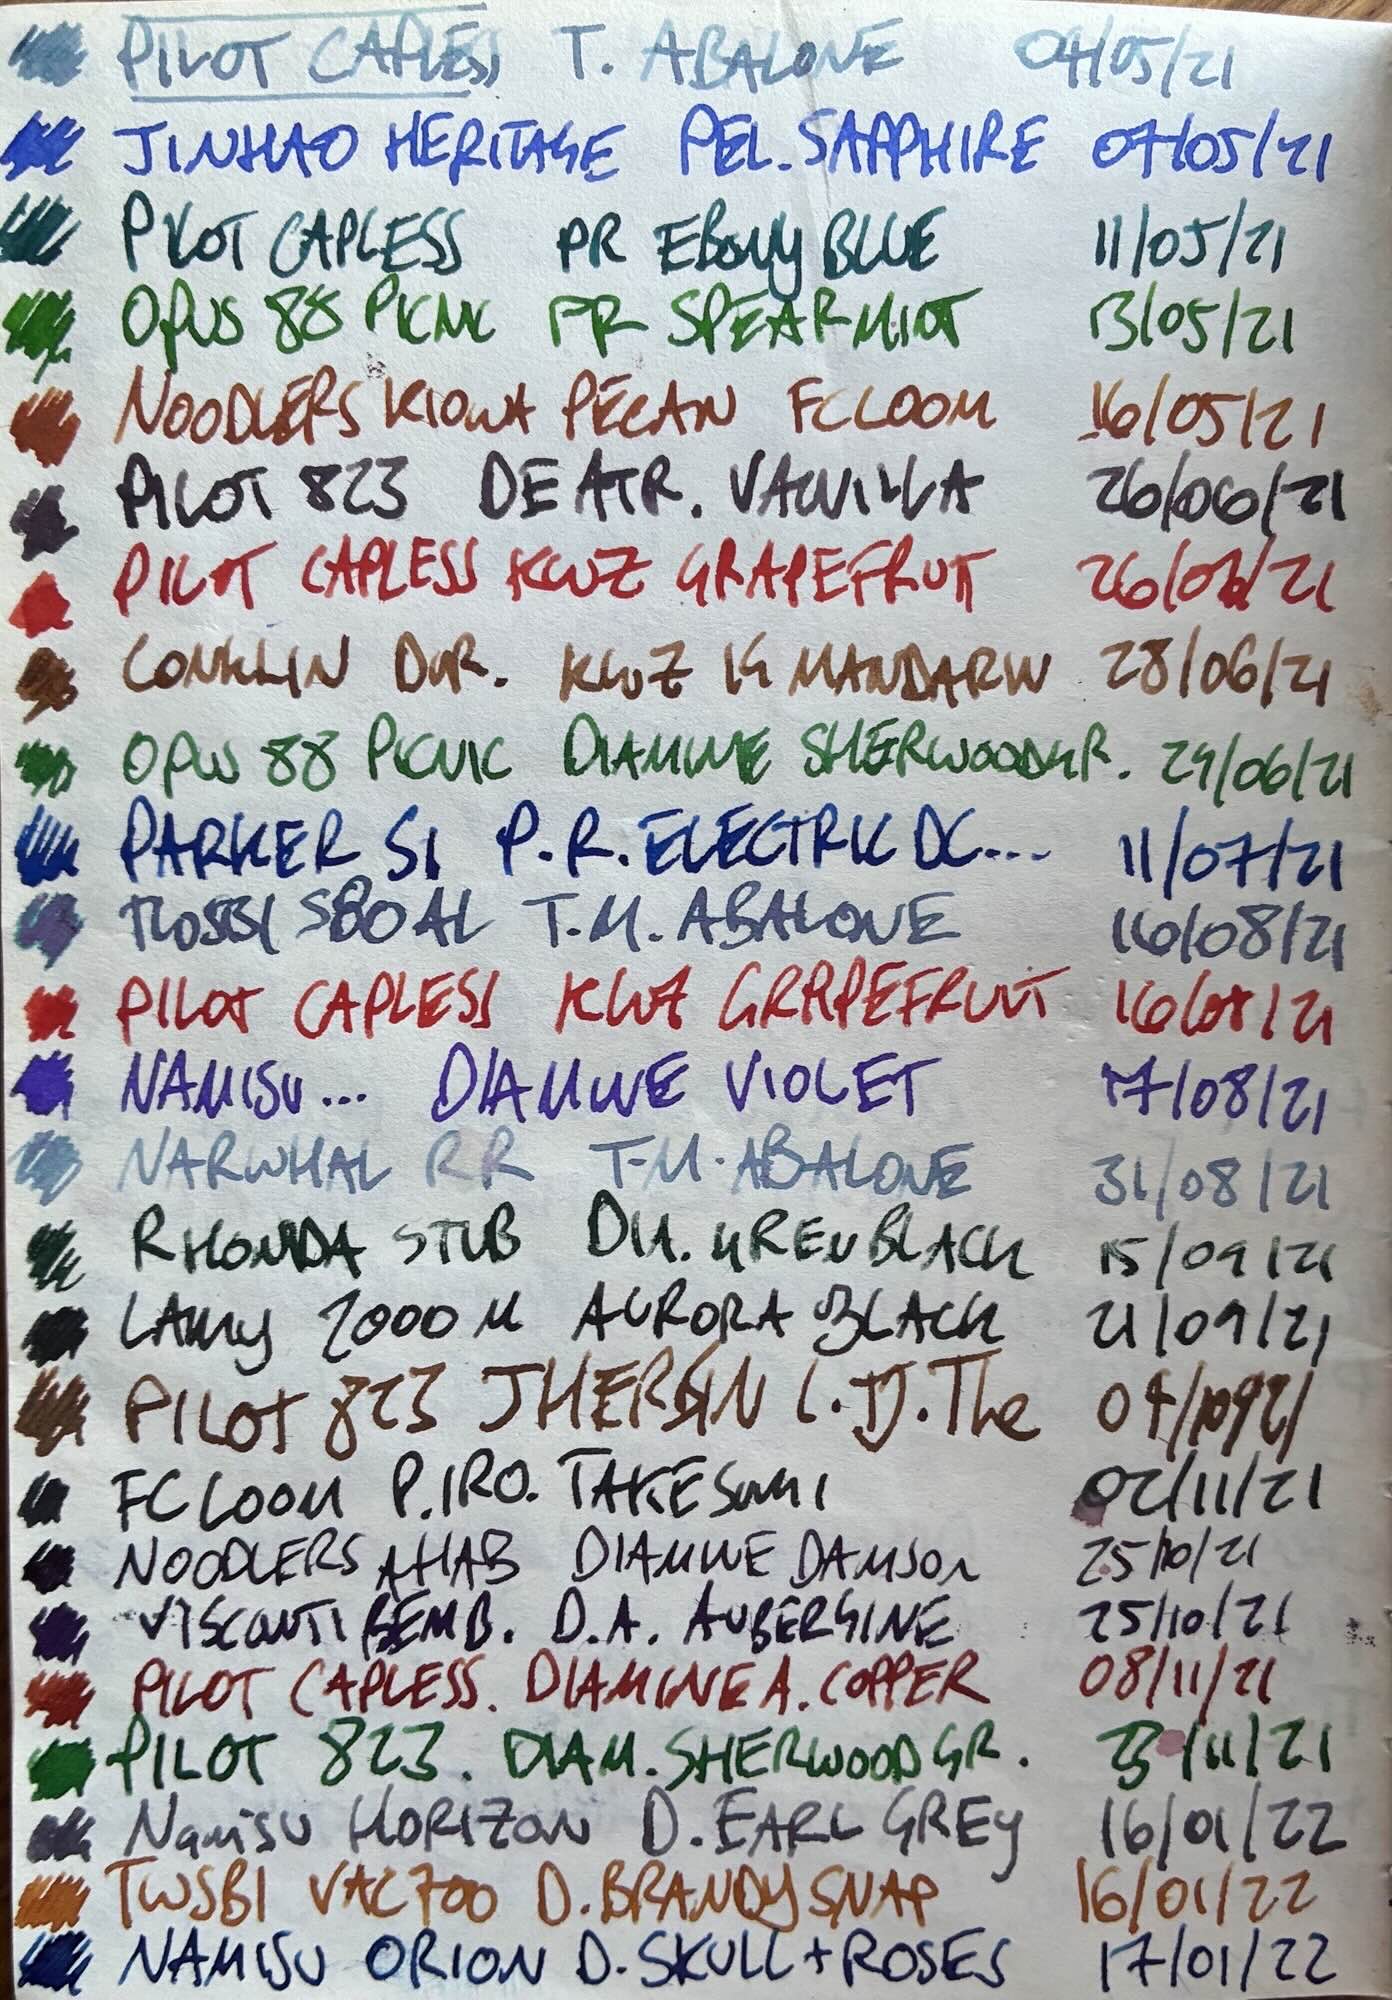 PILOT CAPLESS T. ABALONE 04/05/21
JINHAO HERITAGE PEL. SAPPHIRE 07/05/21
PILOT CAPLESS PR EBONY BLUE 11/05/21
OPUS 88 PICNIC PR SPEARMINT 13/05/21
NOODLERS KIOWA PECAN FCLOOM 16/05/21
PILOT 823 DE ATR. VANILLA 26/06/21
PILOT CAPLESS KWZ GRAPEFRUIT 26/06/21
CONKLIN DUR. KWZ IG MANDARIN 28/06/21
OPUS 88 PICNIC DIAMINE SHERWOODGR. 29/06/21
PARKER 51 P.R. ELECTRIC DC... 11/07/21
TWSBI 580 AL T.M. ABALONE 16/08/21
PILOT CAPLESS KWZ GRAPEFRUIT 16/08/21
NAMISU... DIAMINE VIOLET 17/08/21
NARWHAL RR T.M. ABALONE 31/08/21
RHONDA STUB DIA. GREEN BLACK 15/09/21
LAMY 2000 M AURORA BLACK 21/09/21
PILOT 823 JHERBIN L.D. The 04/10/21
FC LOOM P. IRO. TAKESUMI 02/11/21
NOODLERS AHAB DIAMINE DAMSON 25/10/21
VISCONTI BEMB. D.A. AUBERGINE 25/10/21
PILOT CAPLESS. DIAMINE A. COPPER 08/11/21
PILOT 823. DIAM. SHERWOOD GR. 23/11/21
Namisu HORIZON D. EARL GREY 16/01/22
TWSBI VAC700 D. BRANDY SNAP 16/01/22
NAMISU ORION D. SKULL + ROSES 17/01/22